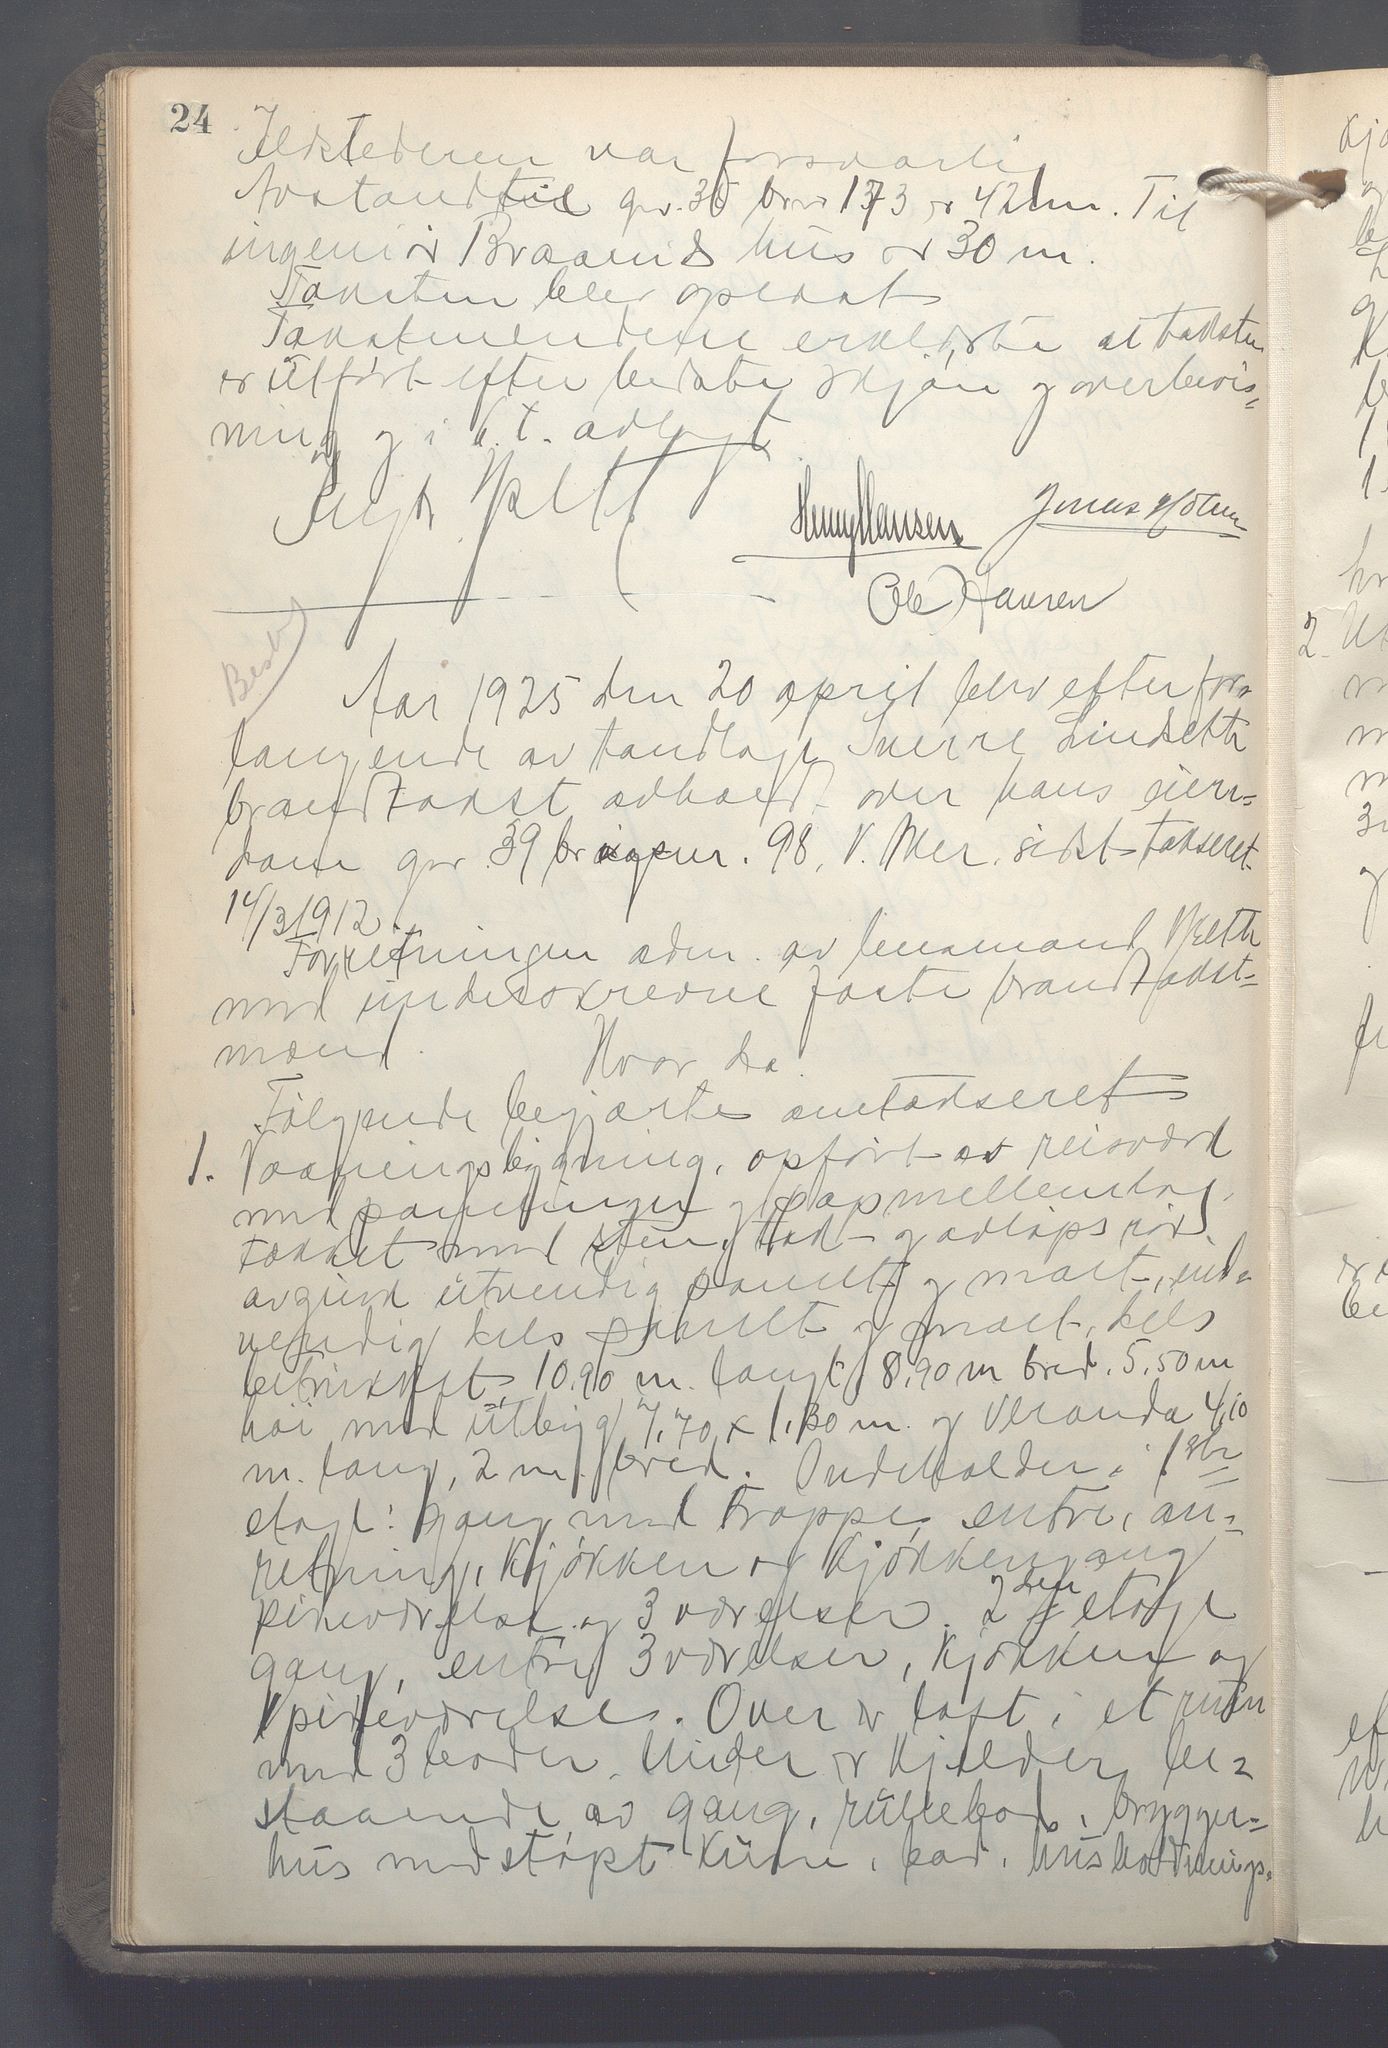 24
Ildstederne var forsvarlig
Avstand til gnr. 35 bnr 173 er 42 m. Til
ingeniør Braaens hus er 30 m.
Taksten blev oplæst
Takstmændene erklærte at taksten
er utført efter bedste skjøn og overbevis=
ning og i h.t. avlagt
Henry Hansen Jonas Holm
Ole Hansen
Aar 1925 den 20 april blev efter for=
langende av tandlæge Sverre Lindseth
brandtakst avholdt over hans eien=
dom gnr. 39 bruksnr. 98, V. Mer. sidst takseret
14/3 1912.
Forretningen adm. av lensmand
med undeskrevne faste brandtakst=
mænd.
Hvor da:
Følgende begjærtes omtakseret
1. Vaaningsbygning, opført av reisverk
med paneling og papmellemlag,
tækket med sten, tak- og avløpsrør.
avgjord utvendig panelt og malt, ind=
vendig dels panelt og malt, dels
betrukket, 10,90 m. langt, 8,90 m bred. 5,50 m
høi med utbyg 7,70 x 1,30 m. og veranda 4,10
m. lang, 2 m. bred. Indeholder i 1ste
etage: gang med trappe, entre, an=
retning, kjøkken og kjøkkengang
pikeværelse og 3 værelser. 2den etage
gang, entre, 3 værelser, kjøkken og
pikeværelse. Over er loft i et rum
med 3 boder. Under er kjelder be=
staaende av gang, rullebod, brygger=
hus med støpt kum, bad, husholdnings=